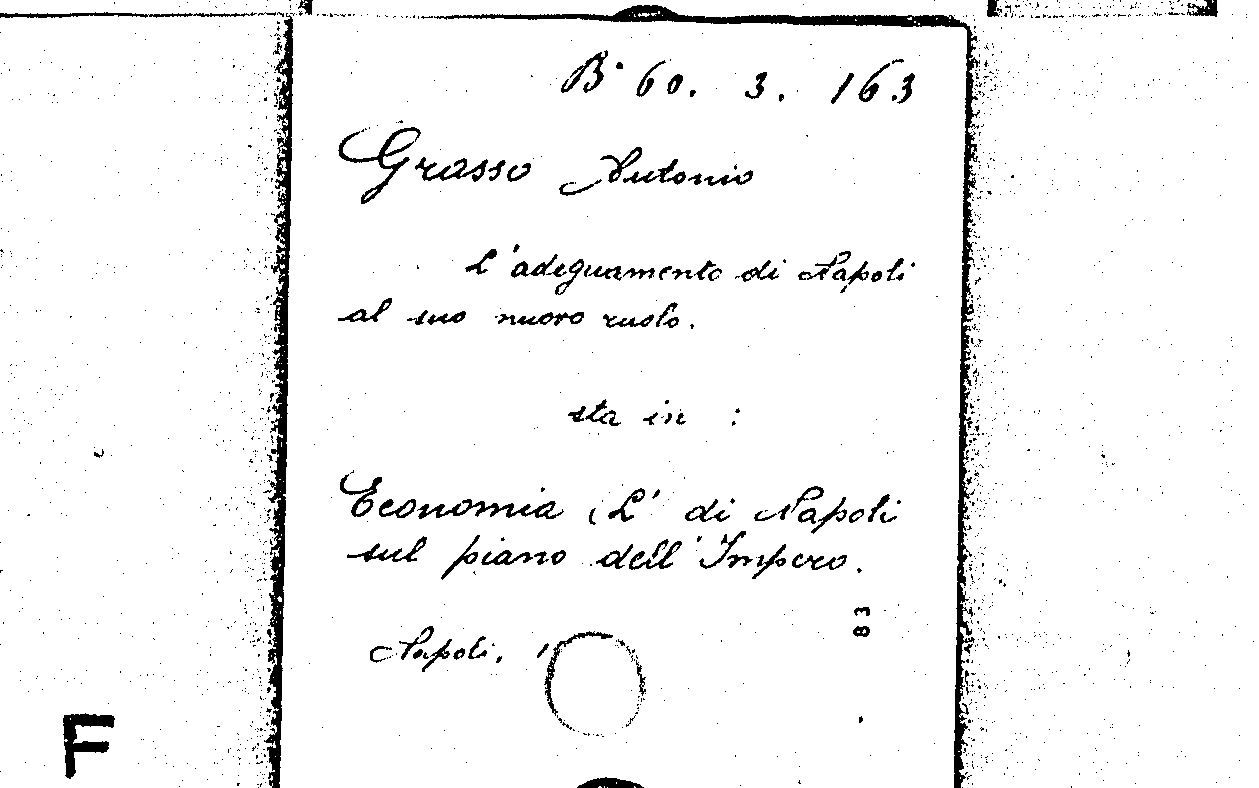 B. 60. 3. 163
Grasso Antonio
L'adeguamento di Napoli
al suo nuovo ruolo.
sta in :
Economia (L' di Napoli
sul piano dell'Impero.
83
Napoli, 1
F